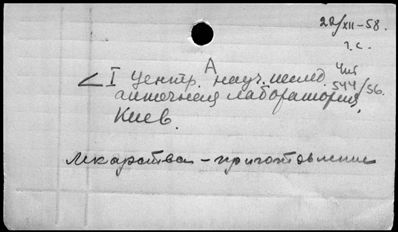 22/XII-58.
г.с.
А
< I Центр. науч. исслед.
аптечная лаборатория,
544/56.
Киев.
Лекарства - приготовление